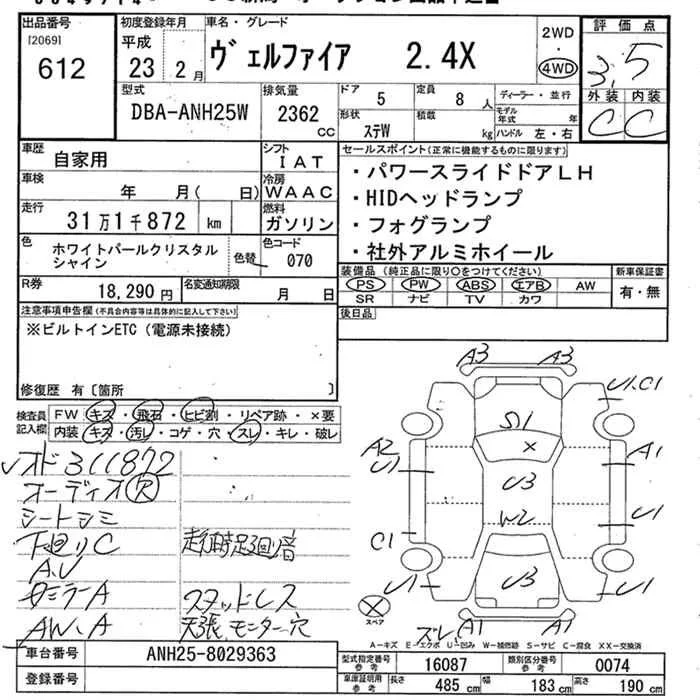 出品番号 [2069] 612
初度登録年月 平成 23年 2月
車名・グレード ヴェルファイア 2.4X
2WD
4WD
評価点 3.5
外装 内装
C C
型式 DBA-ANH25W
排気量 2362 cc
ドア 5
定員 8人
ディーラー・並行
形状 ステW
積載 kg
モデル年式 年
ハンドル 左・右
車歴 自家用
シフト IAT
車検 年 月(日)
冷房 WAAC
走行 31万1千872 km
燃料 ガソリン
色 ホワイトパールクリスタルシャイン
色替
色コード 070
R券 18,290円
名変通知期限 月 日
セールスポイント(正常に機能するものに限ります)
・パワースライドドアLH
・HIDヘッドランプ
・フォグランプ
・社外アルミホイール
装備品(純正品に限り○をつけてください)
PS PW ABS エアB AW
SR ナビ TV カワ
新車保証書
有・無
後日品
注意事項申告欄(不具合内容等は具体的に記入して下さい)
※ビルトインETC(電源未接続)
修復歴 有〔箇所 〕
検査員記入欄
FW・キズ・飛石・ヒビ割・リペア跡・×要
内装・キズ・汚レ・コゲ・穴・スレ・キレ・破レ
オド311872
オーディオ穴
シートシミ
下廻りC
A,V
ミラーA
AW,A
走行時足回音
スタッドレス
天張,モニター穴
A3 A3
U1,C1
S1
×
A2
U1
A1
U3
W2
U1
C1
U1
U3
U1
スレ A1 A1
スペア
A-キズ E-エクボ U-凹み W-補修跡 S-サビ C-腐食 XX-交換済
車台番号 ANH25-8029363
登録番号
型式指定番号 参考 16087
類別区分番号 参考 0074
車庫証明用 参考
長さ 485 cm
幅 183 cm
高さ 190 cm